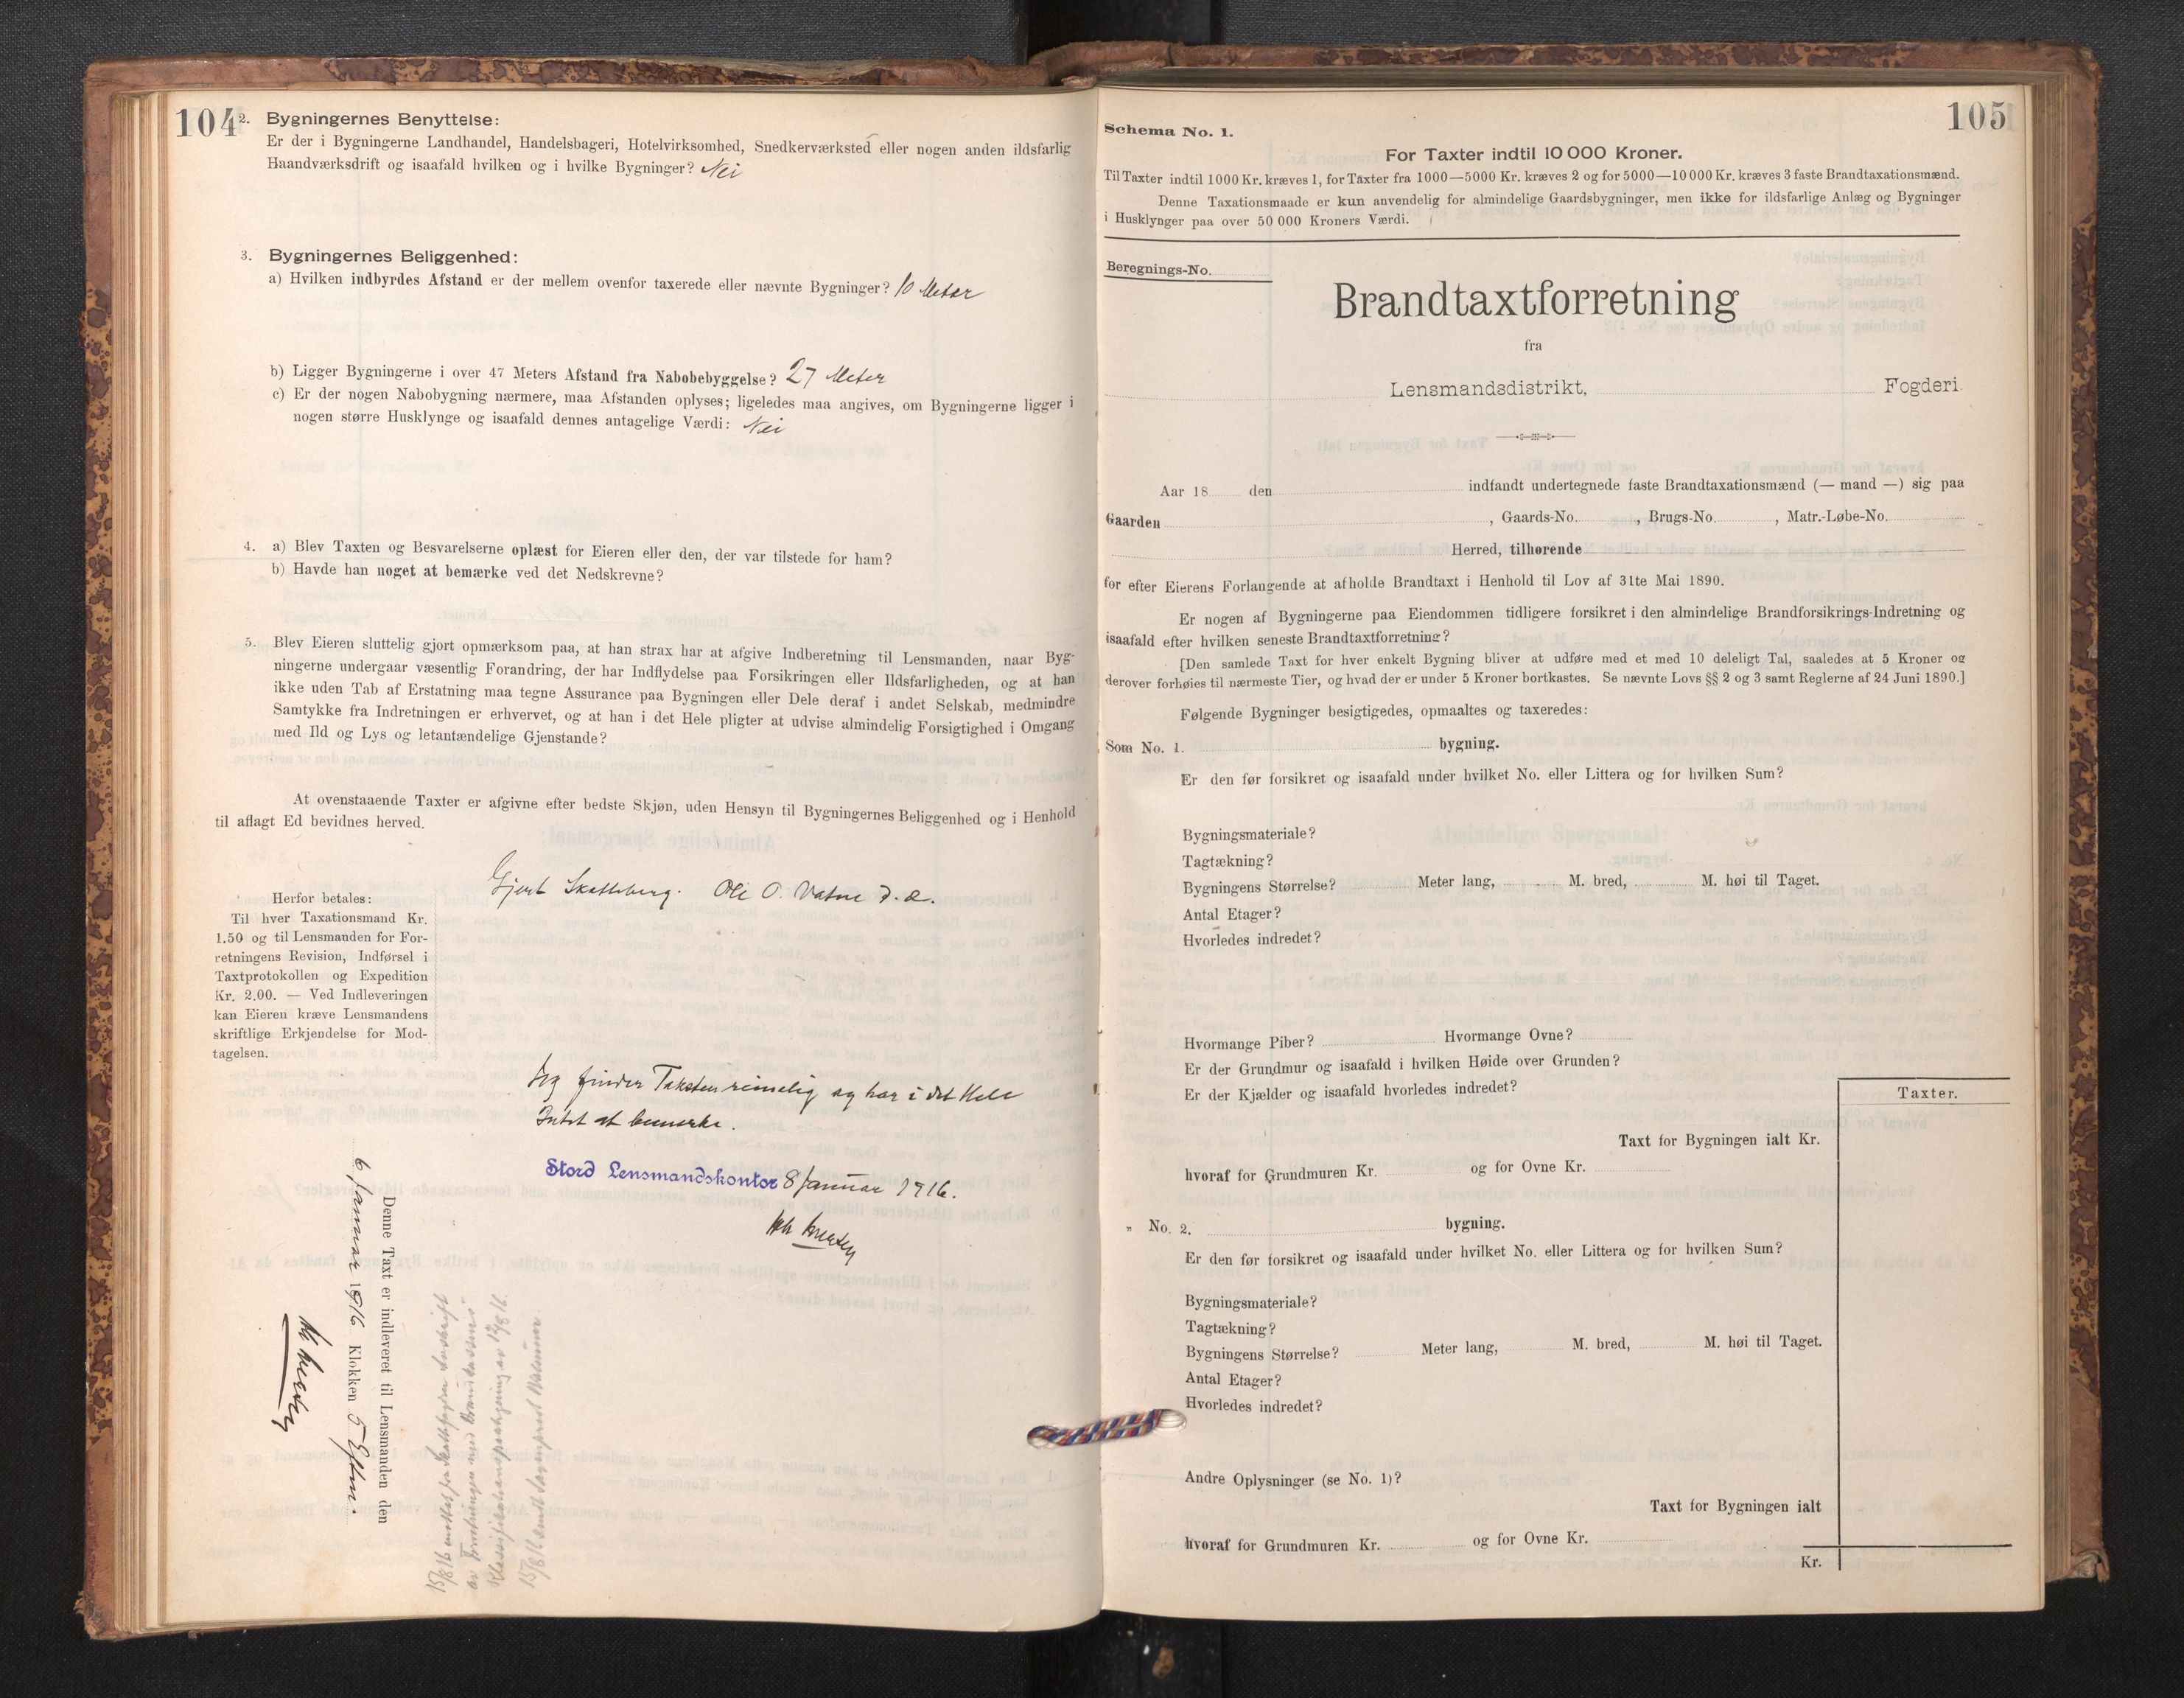 104
2. Bygningernes Benyttelse:
Er der i Bygningerne Landhandel, Handelsbageri, Hotelvirksomhed, Snedkerværksted eller nogen anden ildsfarlig
Haandværksdrift og isaafald hvilken og i hvilke Bygninger? Nei
3. Bygningernes Beliggenhed:
a) Hvilken indbyrdes Afstand er der mellem ovenfor taxerede eller nævnte Bygninger? 10 Meter
b) Ligger Bygningerne i over 47 Meters Afstand fra Nabobebyggelse? 27 Meter
c) Er der nogen Nabobygning nærmere, maa Afstanden oplyses; ligeledes maa angives, om Bygningerne ligger i
nogen større Husklynge og isaafald dennes antagelige Værdi: Nei
4. a) Blev Taxten og Besvarelserne oplæst for Eieren eller den, der var tilstede for ham?
b) Havde han noget at bemærke ved det Nedskrevne?
5. Blev Eieren sluttelig gjort opmærksom paa, at han strax har at afgive Indberetning til Lensmanden, naar Byg-
ningerne undergaar væsentlig Forandring, der har Indflydelse paa Forsikringen eller Ildsfarligheden, og at han
ikke uden Tab af Erstatning maa tegne Assurance paa Bygningen eller Dele deraf i andet Selskab, medmindre
Samtykke fra Indretningen er erhvervet, og at han i det Hele pligter at udvise almindelig Forsigtighed i Omgang
med Ild og Lys og letantændelige Gjenstande?
At ovenstaaende Taxter er afgivne efter bedste Skjøn, uden Hensyn til Bygningernes Beliggenhed og i Henhold
til aflagt Ed bevidnes herved.
Gjert Skatteberg. Ole O. Vatne d. e.
Herfor betales:
Til hver Taxationsmand Kr.
1.50 og til Lensmanden for For-
retningens Revision, Indførsel i
Taxtprotokollen og Expedition
Kr. 2.00. — Ved Indleveringen
kan Eieren kræve Lensmandens
skriftlige Erkjendelse for Mod-
tagelsen.
Jeg finder Taksten rimelig og har i det Hele
Intet at bemerke.
Stord Lensmandskontor 8 Januar 1916.
Denne Taxt er indleveret til Lensmanden den
6 Januar 1916 Klokken 5 Eftm.
105
Schema No. 1.
For Taxter indtil 10 000 Kroner.
Til Taxter indtil 1000 Kr. kræves 1, for Taxter fra 1000—5000 Kr. kræves 2 og for 5000—10 000 Kr. kræves 3 faste Brandtaxationsmænd.
Denne Taxationsmaade er kun anvendelig for almindelige Gaardsbygninger, men ikke for ildsfarlige Anlæg og Bygninger
i Husklynger paa over 50 000 Kroners Værdi.
Beregnings-No.
Brandtaxtforretning
fra
Lensmandsdistrikt, Fogderi
Aar 18 den indfandt undertegnede faste Brandtaxationsmænd (— mand —) sig paa
Gaarden , Gaards-No. , Brugs-No. , Matr.-Løbe-No.
Herred, tilhørende
for efter Eierens Forlangende at afholde Brandtaxt i Henhold til Lov af 31te Mai 1890.
Er nogen af Bygningerne paa Eiendommen tidligere forsikret i den almindelige Brandforsikrings-Indretning og
isaafald efter hvilken seneste Brandtaxtforretning?
[Den samlede Taxt for hver enkelt Bygning bliver at udføre med et med 10 deleligt Tal, saaledes at 5 Kroner og
derover forhøies til nærmeste Tier, og hvad der er under 5 Kroner bortkastes. Se nævnte Lovs §§ 2 og 3 samt Reglerne af 24 Juni 1890.]
Følgende Bygninger besigtigedes, opmaaltes og taxeredes:
Som No. 1. bygning.
Er den før forsikret og isaafald under hvilket No. eller Littera og for hvilken Sum?
Bygningsmateriale?
Tagtækning?
Bygningens Størrelse? Meter lang, M. bred, M. høi til Taget.
Antal Etager?
Hvorledes indredet?
Hvormange Piber? Hvormange Ovne?
Er der Grundmur og isaafald i hvilken Høide over Grunden?
Er der Kjælder og isaafald hvorledes indredet?
Taxter.
Taxt for Bygningen ialt Kr.
hvoraf for Grundmuren Kr. og for Ovne Kr.
" No. 2. bygning.
Er den før forsikret og isaafald under hvilket No. eller Littera og for hvilken Sum?
Bygningsmateriale?
Tagtækning?
Bygningens Størrelse? Meter lang, M. bred, M. høi til Taget.
Antal Etager?
Hvorledes indredet?
Andre Oplysninger (se No. 1)?
Taxt for Bygningen ialt
hvoraf for Grundmuren Kr. og for Ovne Kr.
Kr.